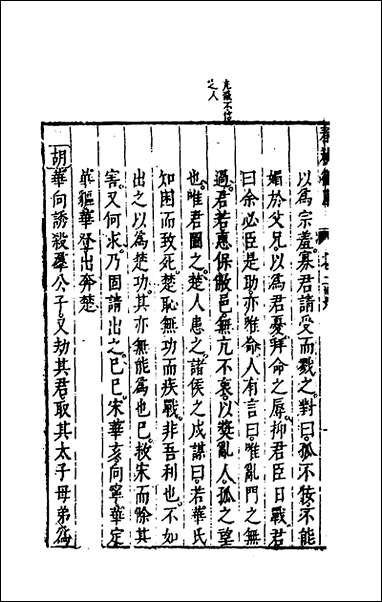 以為宗羞寡君請受而戮之對曰孤不佞不能
媚於父兄以為君憂拜命之辱抑君臣日戰君
曰余必臣是助亦唯命人有言曰唯亂門之無
過君若惠保敝邑無亢不衷以奬亂人孤之望
也唯君圖之楚人患之諸侯之戍謀曰若華氏
知困而致死楚恥無功而疾戰非吾利也不如
出之以為楚功其亦無能為也已救宋而除其
害又何求乃固請出之己巳宋華亥向寧華定
華貙華登出奔楚
胡華向誘殺羣公子又劫其君取其太子母弟為